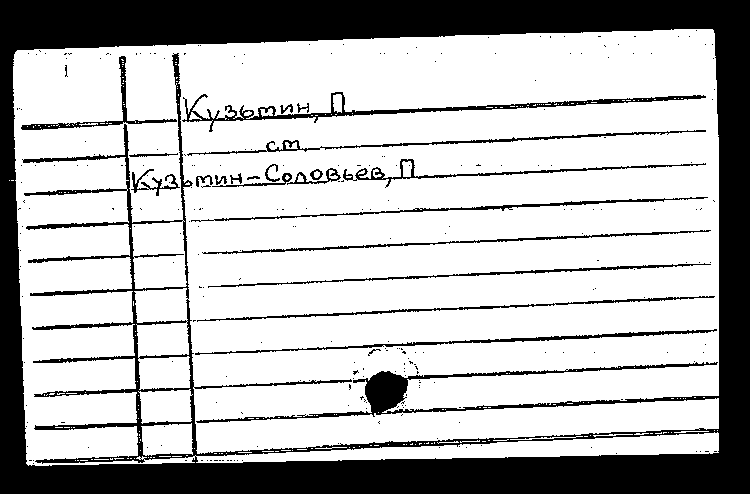 Кузьмин, П.
ст.
Кузьмин-Соловьев, П.